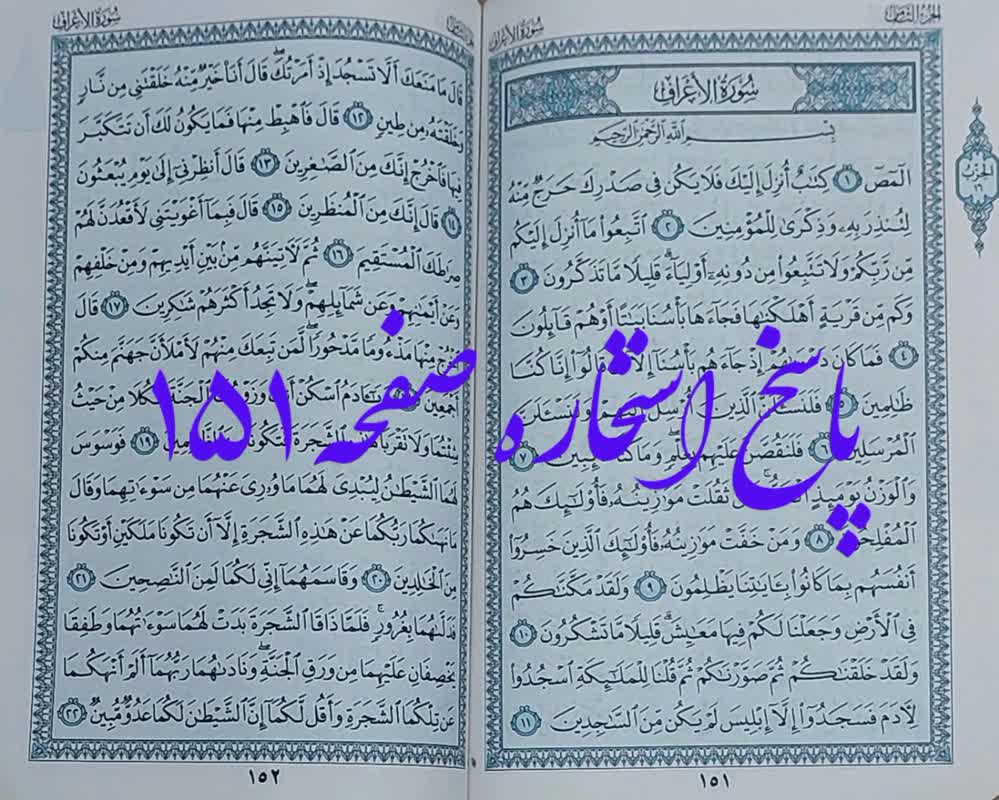 الجزء الثامن
سورة الأعراف
سُورَةُ الأَعْرَافِ
بِسْمِ اللَّهِ الرَّحْمَٰنِ الرَّحِيمِ
الٓمٓصٓ ١ كِتَٰبٌ أُنزِلَ إِلَيْكَ فَلَا يَكُن فِي صَدْرِكَ حَرَجٌ مِّنْهُ
لِتُنذِرَ بِهِۦ وَذِكْرَىٰ لِلْمُؤْمِنِينَ ٢ ٱتَّبِعُوا۟ مَآ أُنزِلَ إِلَيْكُم
مِّن رَّبِّكُمْ وَلَا تَتَّبِعُوا۟ مِن دُونِهِۦٓ أَوْلِيَآءَ ۗ قَلِيلًا مَّا تَذَكَّرُونَ ٣
وَكَم مِّن قَرْيَةٍ أَهْلَكْنَٰهَا فَجَآءَهَا بَأْسُنَا بَيَٰتًا أَوْ هُمْ قَآئِلُونَ
٤ فَمَا كَانَ إِذْ جَآءَهُم بَأْسُنَآ إِلَّآ قَالُوٓا۟ إِنَّا كُنَّا
ظَٰلِمِينَ ٥ فَلَنَسْـَٔلَنَّ ٱلَّذِينَ أُرْسِلَ إِلَيْهِمْ وَلَنَسْـَٔلَنَّ
ٱلْمُرْسَلِينَ ٦ فَلَنَقُصَّنَّ عَلَيْهِم بِعِلْمٍ ۖ وَمَا كُنَّا غَآئِبِينَ ٧
وَٱلْوَزْنُ يَوْمَئِذٍ ٱلْحَقُّ ۚ ثَقُلَتْ مَوَٰزِينُهُۥ فَأُو۟لَٰٓئِكَ هُمُ
ٱلْمُفْلِحُونَ ٨ وَمَنْ خَفَّتْ مَوَٰزِينُهُۥ فَأُو۟لَٰٓئِكَ ٱلَّذِينَ خَسِرُوٓا۟
أَنفُسَهُم بِمَا كَانُوا۟ بِـَٔايَٰتِنَا يَظْلِمُونَ ٩ وَلَقَدْ مَكَّنَّٰكُمْ
فِي ٱلْأَرْضِ وَجَعَلْنَا لَكُمْ فِيهَا مَعَٰيِشَ ۗ قَلِيلًا مَّا تَشْكُرُونَ ١٠
وَلَقَدْ خَلَقْنَٰكُمْ ثُمَّ صَوَّرْنَٰكُمْ ثُمَّ قُلْنَا لِلْمَلَٰٓئِكَةِ ٱسْجُدُوا۟
لِءَادَمَ فَسَجَدُوٓا۟ إِلَّآ إِبْلِيسَ لَمْ يَكُن مِّنَ ٱلسَّٰجِدِينَ ١١
١٥١
الحزب
١٦
سورة الأعراف
قَالَ مَا مَنَعَكَ أَلَّا تَسْجُدَ إِذْ أَمَرْتُكَ ۖ قَالَ أَنَا۠ خَيْرٌ مِّنْهُ خَلَقْتَنِي مِن نَّارٍ
وَخَلَقْتَهُۥ مِن طِينٍ ١٢ قَالَ فَٱهْبِطْ مِنْهَا فَمَا يَكُونُ لَكَ أَن تَتَكَبَّرَ
فِيهَا فَٱخْرُجْ إِنَّكَ مِنَ ٱلصَّٰغِرِينَ ١٣ قَالَ أَنظِرْنِيٓ إِلَىٰ يَوْمِ يُبْعَثُونَ
١٤ قَالَ إِنَّكَ مِنَ ٱلْمُنظَرِينَ ١٥ قَالَ فَبِمَآ أَغْوَيْتَنِي لَأَقْعُدَنَّ لَهُمْ
صِرَٰطَكَ ٱلْمُسْتَقِيمَ ١٦ ثُمَّ لَءَاتِيَنَّهُم مِّنۢ بَيْنِ أَيْدِيهِمْ وَمِنْ خَلْفِهِمْ
وَعَنْ أَيْمَٰنِهِمْ وَعَن شَمَآئِلِهِمْ ۖ وَلَا تَجِدُ أَكْثَرَهُمْ شَٰكِرِينَ ١٧ قَالَ
ٱخْرُجْ مِنْهَا مَذْءُومًا مَّدْحُورًا ۖ لَّمَن تَبِعَكَ مِنْهُمْ لَأَمْلَأَنَّ جَهَنَّمَ مِنكُمْ
أَجْمَعِينَ وَيَٰٓـَٔادَمُ ٱسْكُنْ أَنتَ وَزَوْجُكَ ٱلْجَنَّةَ فَكُلَا مِنْ حَيْثُ
شِئْتُمَا وَلَا تَقْرَبَا هَٰذِهِ ٱلشَّجَرَةَ فَتَكُونَا مِنَ ٱلظَّٰلِمِينَ ١٩ فَوَسْوَسَ
لَهُمَا ٱلشَّيْطَٰنُ لِيُبْدِيَ لَهُمَا مَا وُۥرِيَ عَنْهُمَا مِن سَوْءَٰتِهِمَا وَقَالَ
مَا نَهَىٰكُمَا رَبُّكُمَا عَنْ هَٰذِهِ ٱلشَّجَرَةِ إِلَّآ أَن تَكُونَا مَلَكَيْنِ أَوْ تَكُونَا
مِنَ ٱلْخَٰلِدِينَ ٢٠ وَقَاسَمَهُمَآ إِنِّي لَكُمَا لَمِنَ ٱلنَّٰصِحِينَ ٢١
فَدَلَّىٰهُمَا بِغُرُورٍ ۚ فَلَمَّا ذَاقَا ٱلشَّجَرَةَ بَدَتْ لَهُمَا سَوْءَٰتُهُمَا وَطَفِقَا
يَخْصِفَانِ عَلَيْهِمَا مِن وَرَقِ ٱلْجَنَّةِ ۖ وَنَادَىٰهُمَا رَبُّهُمَآ أَلَمْ أَنْهَكُمَا
عَن تِلْكُمَا ٱلشَّجَرَةِ وَأَقُل لَّكُمَآ إِنَّ ٱلشَّيْطَٰنَ لَكُمَا عَدُوٌّ مُّبِينٌ ٢٢
١٥٢
پاسخ استخاره صفحه ۱۵۱